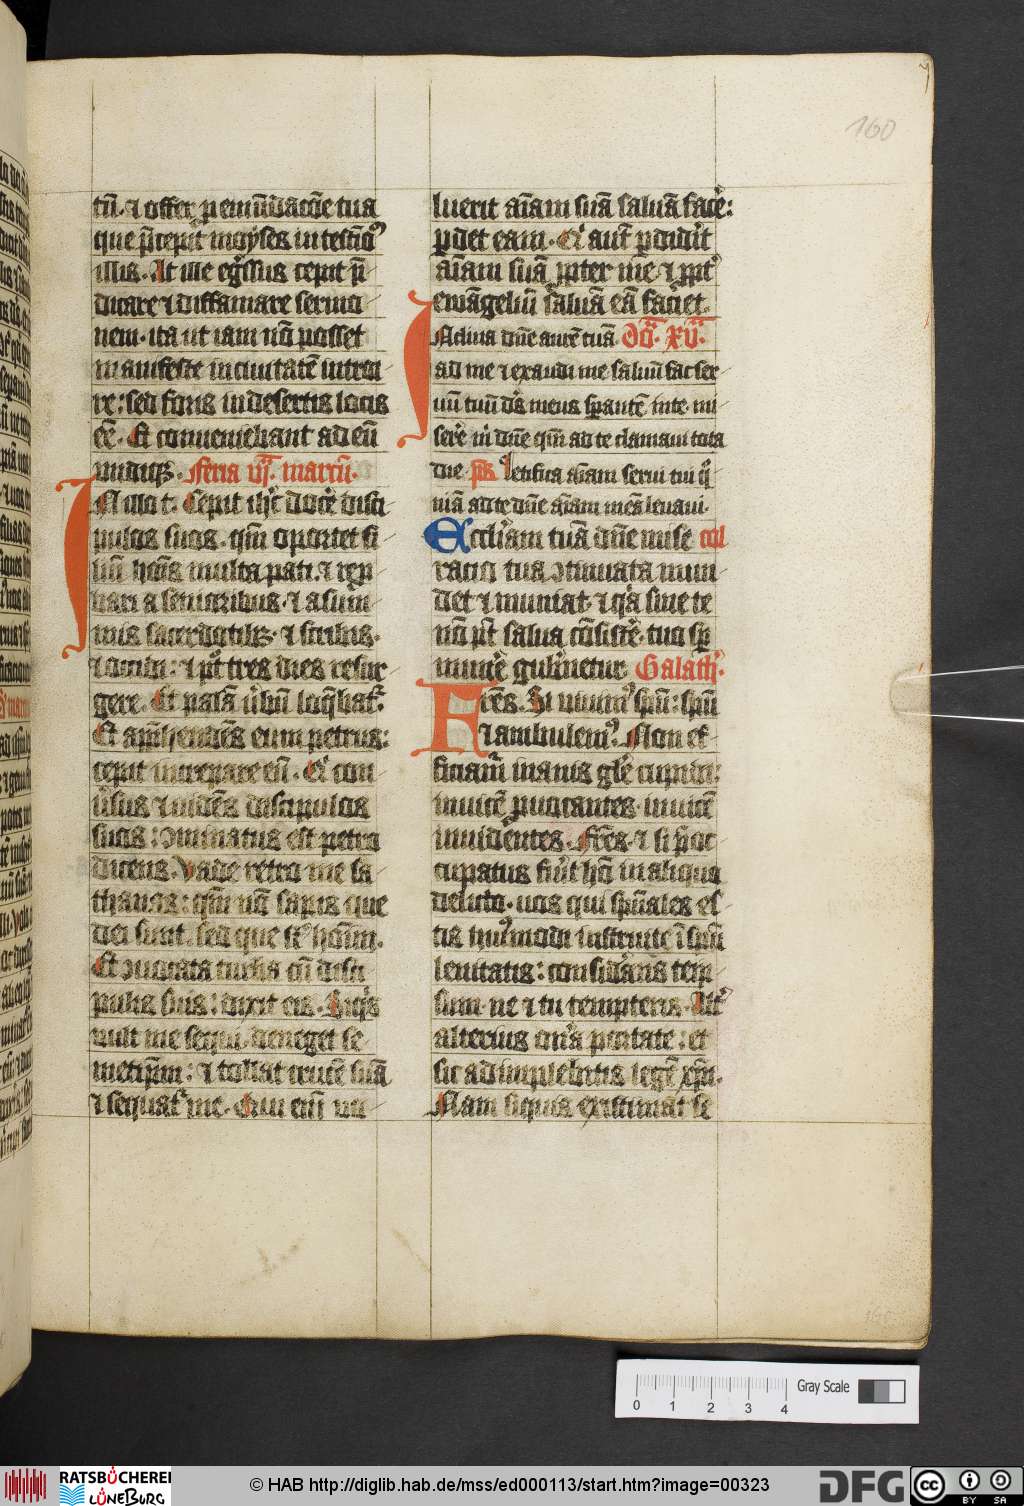 160
tū. ⁊ offer p emūdacōe tua
que p̄cepit moyses in testīoꝰ
illis. At ille eg̃ssus cepit p̄
dicare ⁊ diffamare sermo
nem. ita ut iam nō posset
manifeste in ciuitatē introi
re: sed foris in desertis locis
eē. Et conueniebant ad eū
undiqꝫ. Feria vi. marcū.
IN illo t. Cepit ihē docē disci
pulos suos. qm̄ oportet fi
liū hoīs multa pati. ⁊ rep
bari a senioribus. ⁊ a sum
mis sacerdotibꝫ. ⁊ scribis.
⁊ occidi: ⁊ pꝰ tres dies resur
gere. Et palā ūbū loq̄bat᷑.
Et app̄hendēs eum petrus:
cepit increpare eū. Qi con
ūsus ⁊ uidēs discipulos
suos: ꝯminatus est petro
dicens. Vade retro me sa
thanas: qm̄ nō sapis que
dei sunt. sed que sꝰ hoīm.
Et ꝯuocata turba cū disci
pulis suis: dixit eis. Siq̇s
uult me sequi. deneget se
metip̄m: ⁊ tollat crucē suā
⁊ sequat᷑ me. Qui eī uo
luerit aīam suā saluā facē:
pdet eam. Qi aut̄ pdidit
aīam suā ppter me ⁊ ppt᷑
ewāgeliū saluā eā faciet.
INclina dn̄e aurē tuā Dō̄. xv̄.
ad me ⁊ exaudi me saluū fac ser
uū tuū ds̄ meus sperantē in te. mi
serē m̄ dn̄e qm̄ ad te clamaui tota
die ps̄ Letifica aīam serui tui q̄
niā ad te dn̄e aīam meā leuaui.
Eccl̄iam tuā dn̄e mise col
racio tua ꝯtinuata mun
det ⁊ muniat. ⁊ q̇a sine te
nō pt̄ salua cōsistē. tuo sp̄
munē gub̄netur Galath̄.
Fr̄es. Si uiuimꝰ sp̄u: sp̄u
⁊ ambulemꝰ. Non ef
ficiam᷑ inanis gl̄e cupidi:
inuicē prouocantes. inuicē
inuidentes. Fr̄es. ⁊ si p̄oc
cupatus fūit hō in aliquo
delicto. uos qui sp̄uales es
tis huiꝰmodi instruite ī sp̄u
lenitatis: considāns teip
sum. ne ⁊ tu tempteris. Alt᷑
alterius on̄a portate: et
sic adimplebitis legē xp̄i.
Nam siquis existimat se
Gray Scale
0 1 2 3 4
RATSBÜCHEREI LÜNEBURG
© HAB http://diglib.hab.de/mss/ed000113/start.htm?image=00323
DFG
cc BY SA